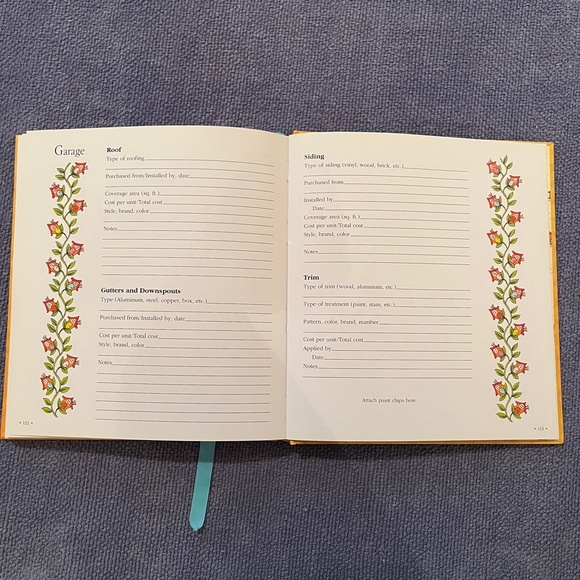 Garage
Roof
Type of roofing
Purchased from/Installed by, date
Coverage area (sq. ft.)
Cost per unit/Total cost
Style, brand, color
Notes
Gutters and Downspouts
Type (Aluminum, steel, copper, box, etc.)
Purchased from/Installed by, date
Cost per unit/Total cost
Style, brand, color
Notes
Siding
Type of siding (vinyl, wood, brick, etc.)
Purchased from
Installed by
Date
Coverage area (sq. ft.)
Cost per unit/Total cost
Style, brand, color
Notes
Trim
Type of trim (wood, aluminum, etc.)
Type of treatment (paint, stain, etc.)
Pattern, color, brand, number
Cost per unit/Total cost
Applied by
Date
Notes
Attach paint chips here.